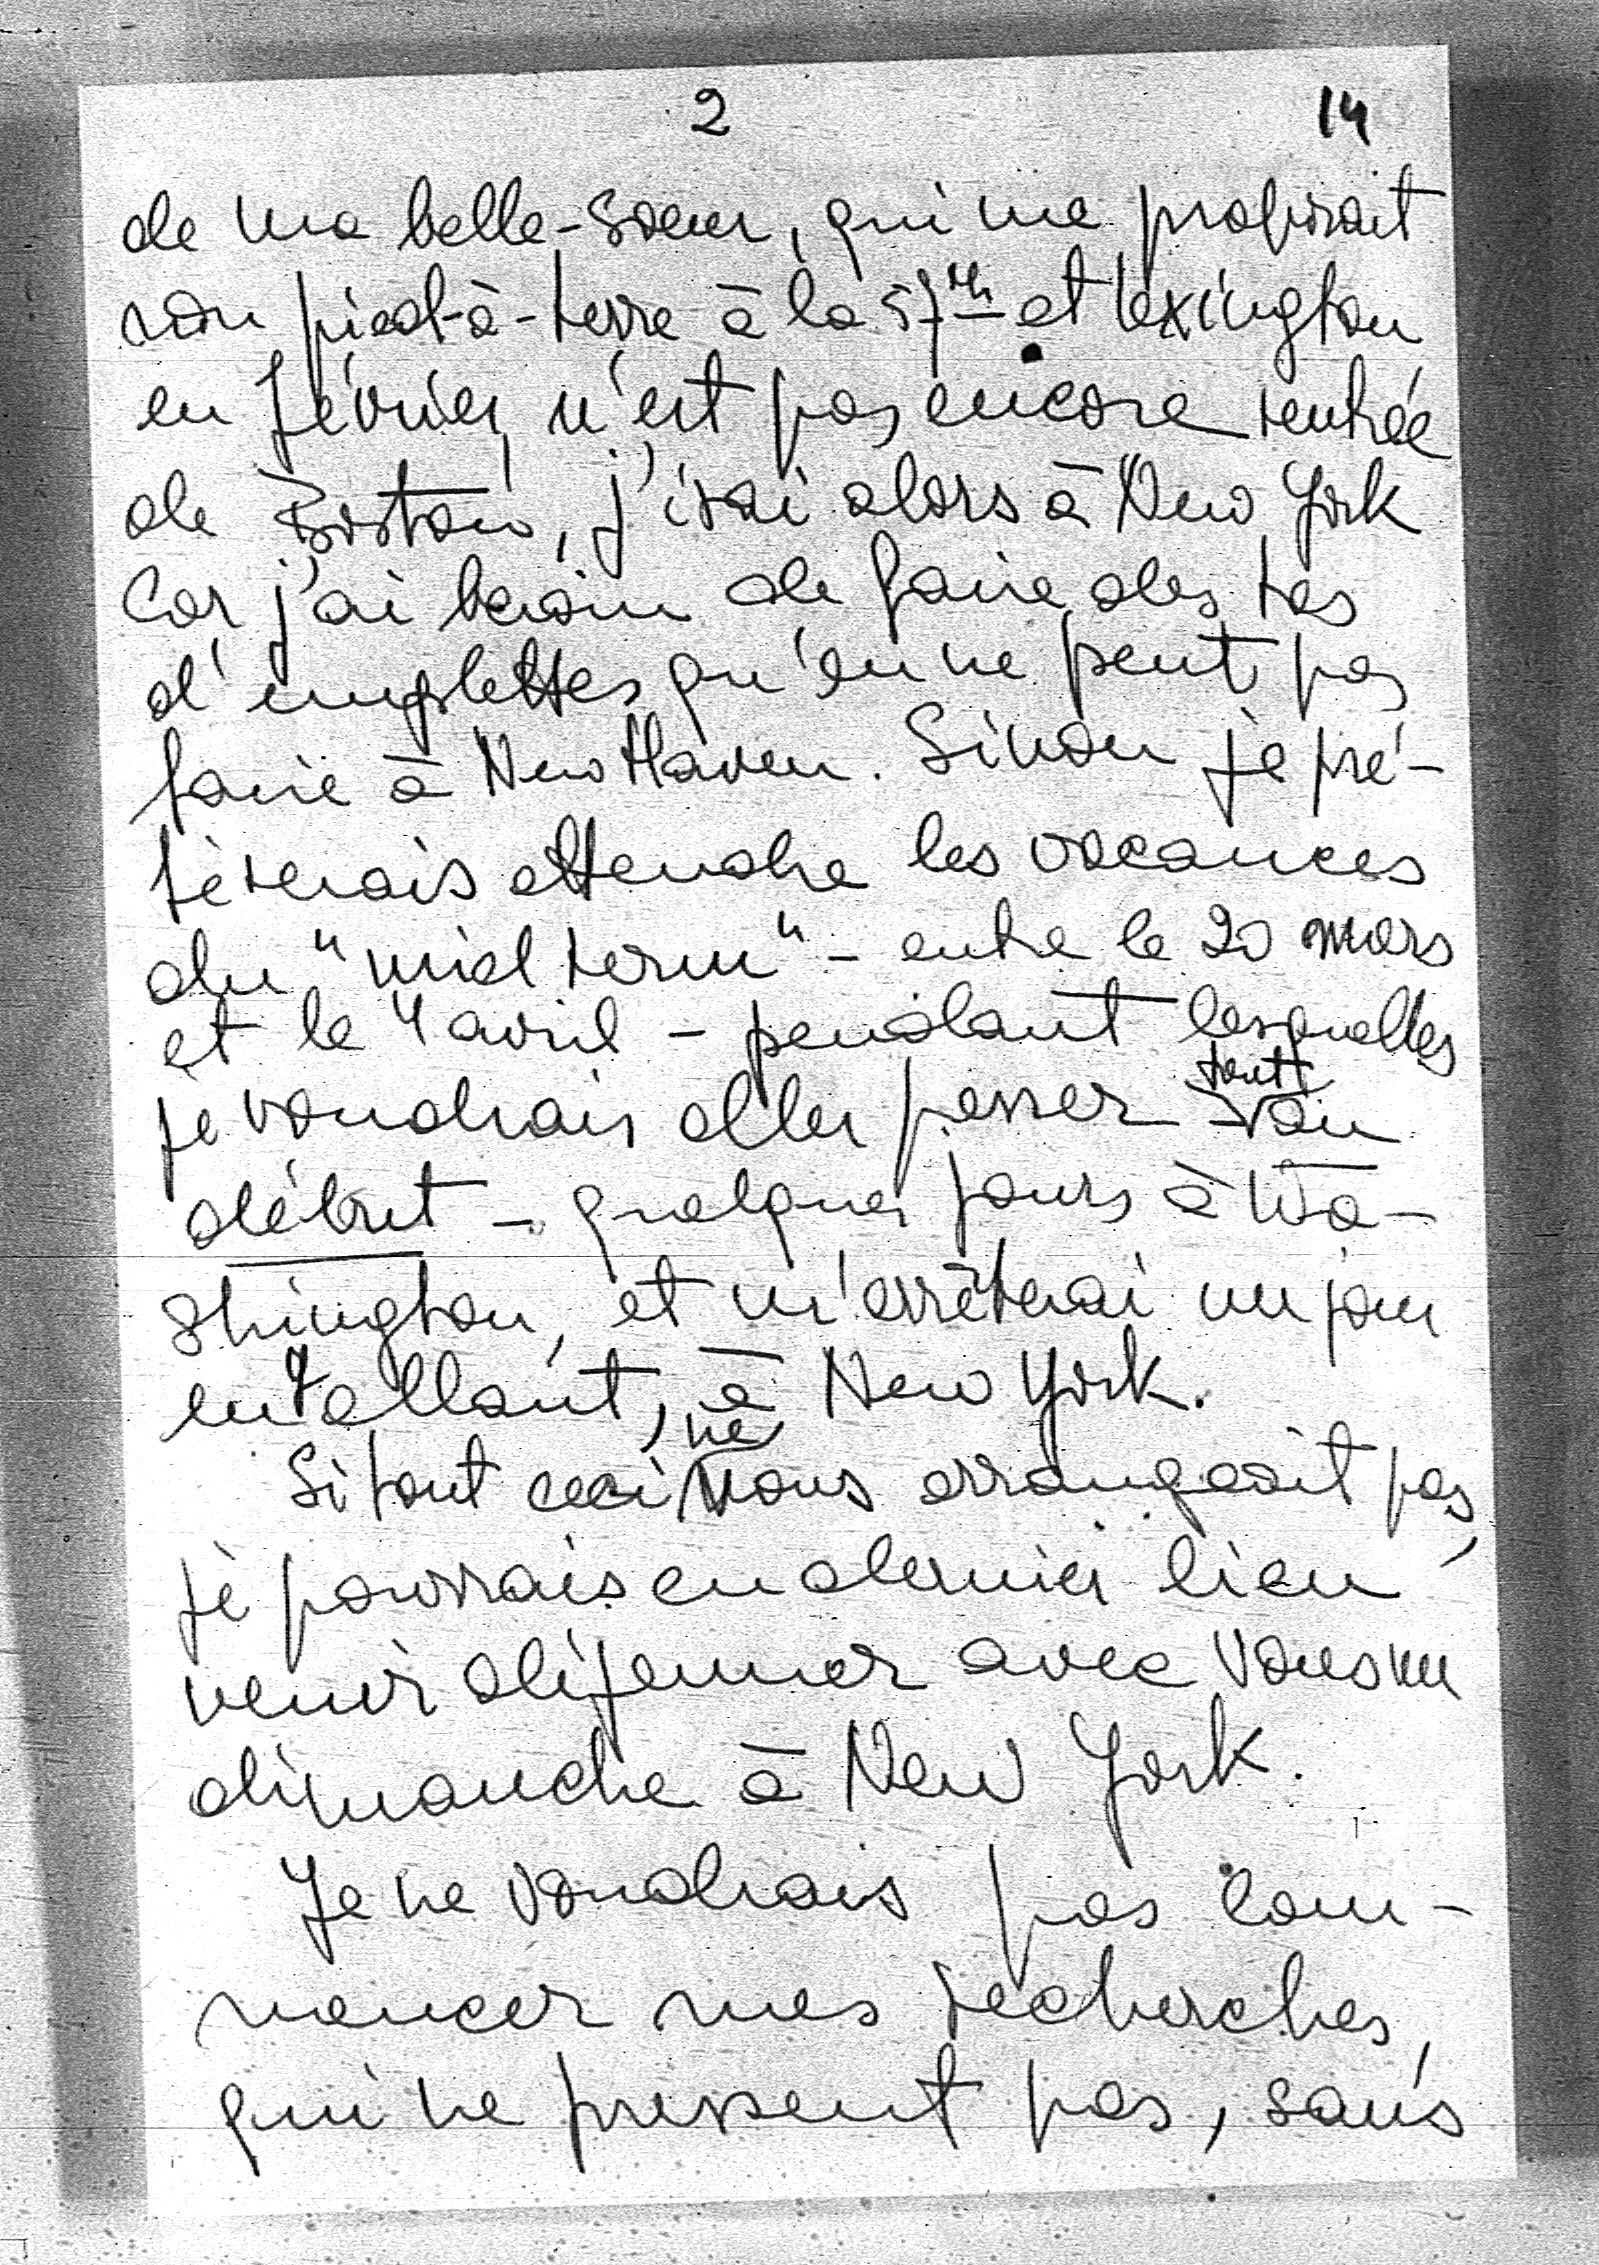 2 14
de ma belle-soeur, qui me proposait
son pied-à-terre à la 57th et Lexington
en février, n'est pas encore rentrée
de Boston, j'irai alors à New York
Car j'ai besoin de faire des tas
d'emplettes qu'on ne peut pas
faire à New Haven. Sinon je pré-
férerais attendre les vacances
du "mid term" - entre le 20 mars
et le 4 avril - pendant lesquelles
je voudrais aller passer - tout
au
début - quelques jours à Wa-
shington, et m'arrêterai un jour
en allant, à New York.
Si tout ceci ne vous arrangeait pas,
je pourrais en dernier lieu
venir déjeuner avec vous un
dimanche à New York.
Je ne voudrais pas com-
mencer mes recherches,
qui ne pressent pas, sans